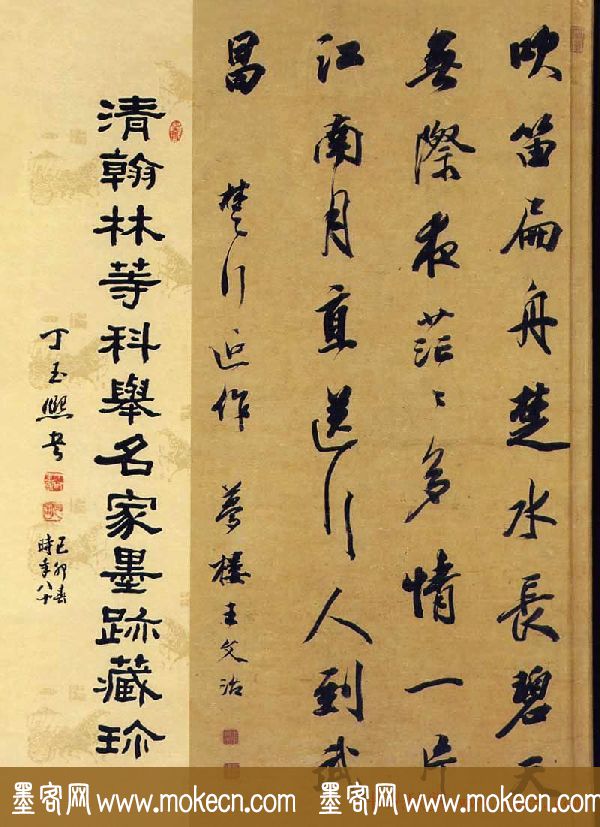 吹笛扁舟楚水長碧天
無際夜茫〻多情一片
江南月直送行人到武
昌
楚行近作　夢樓王文治
清翰林等科舉名家墨跡藏珍
丁玉熙书
己卯春
時年八十
墨客网 www.mokecn.com 墨客网 www.mokecn.com